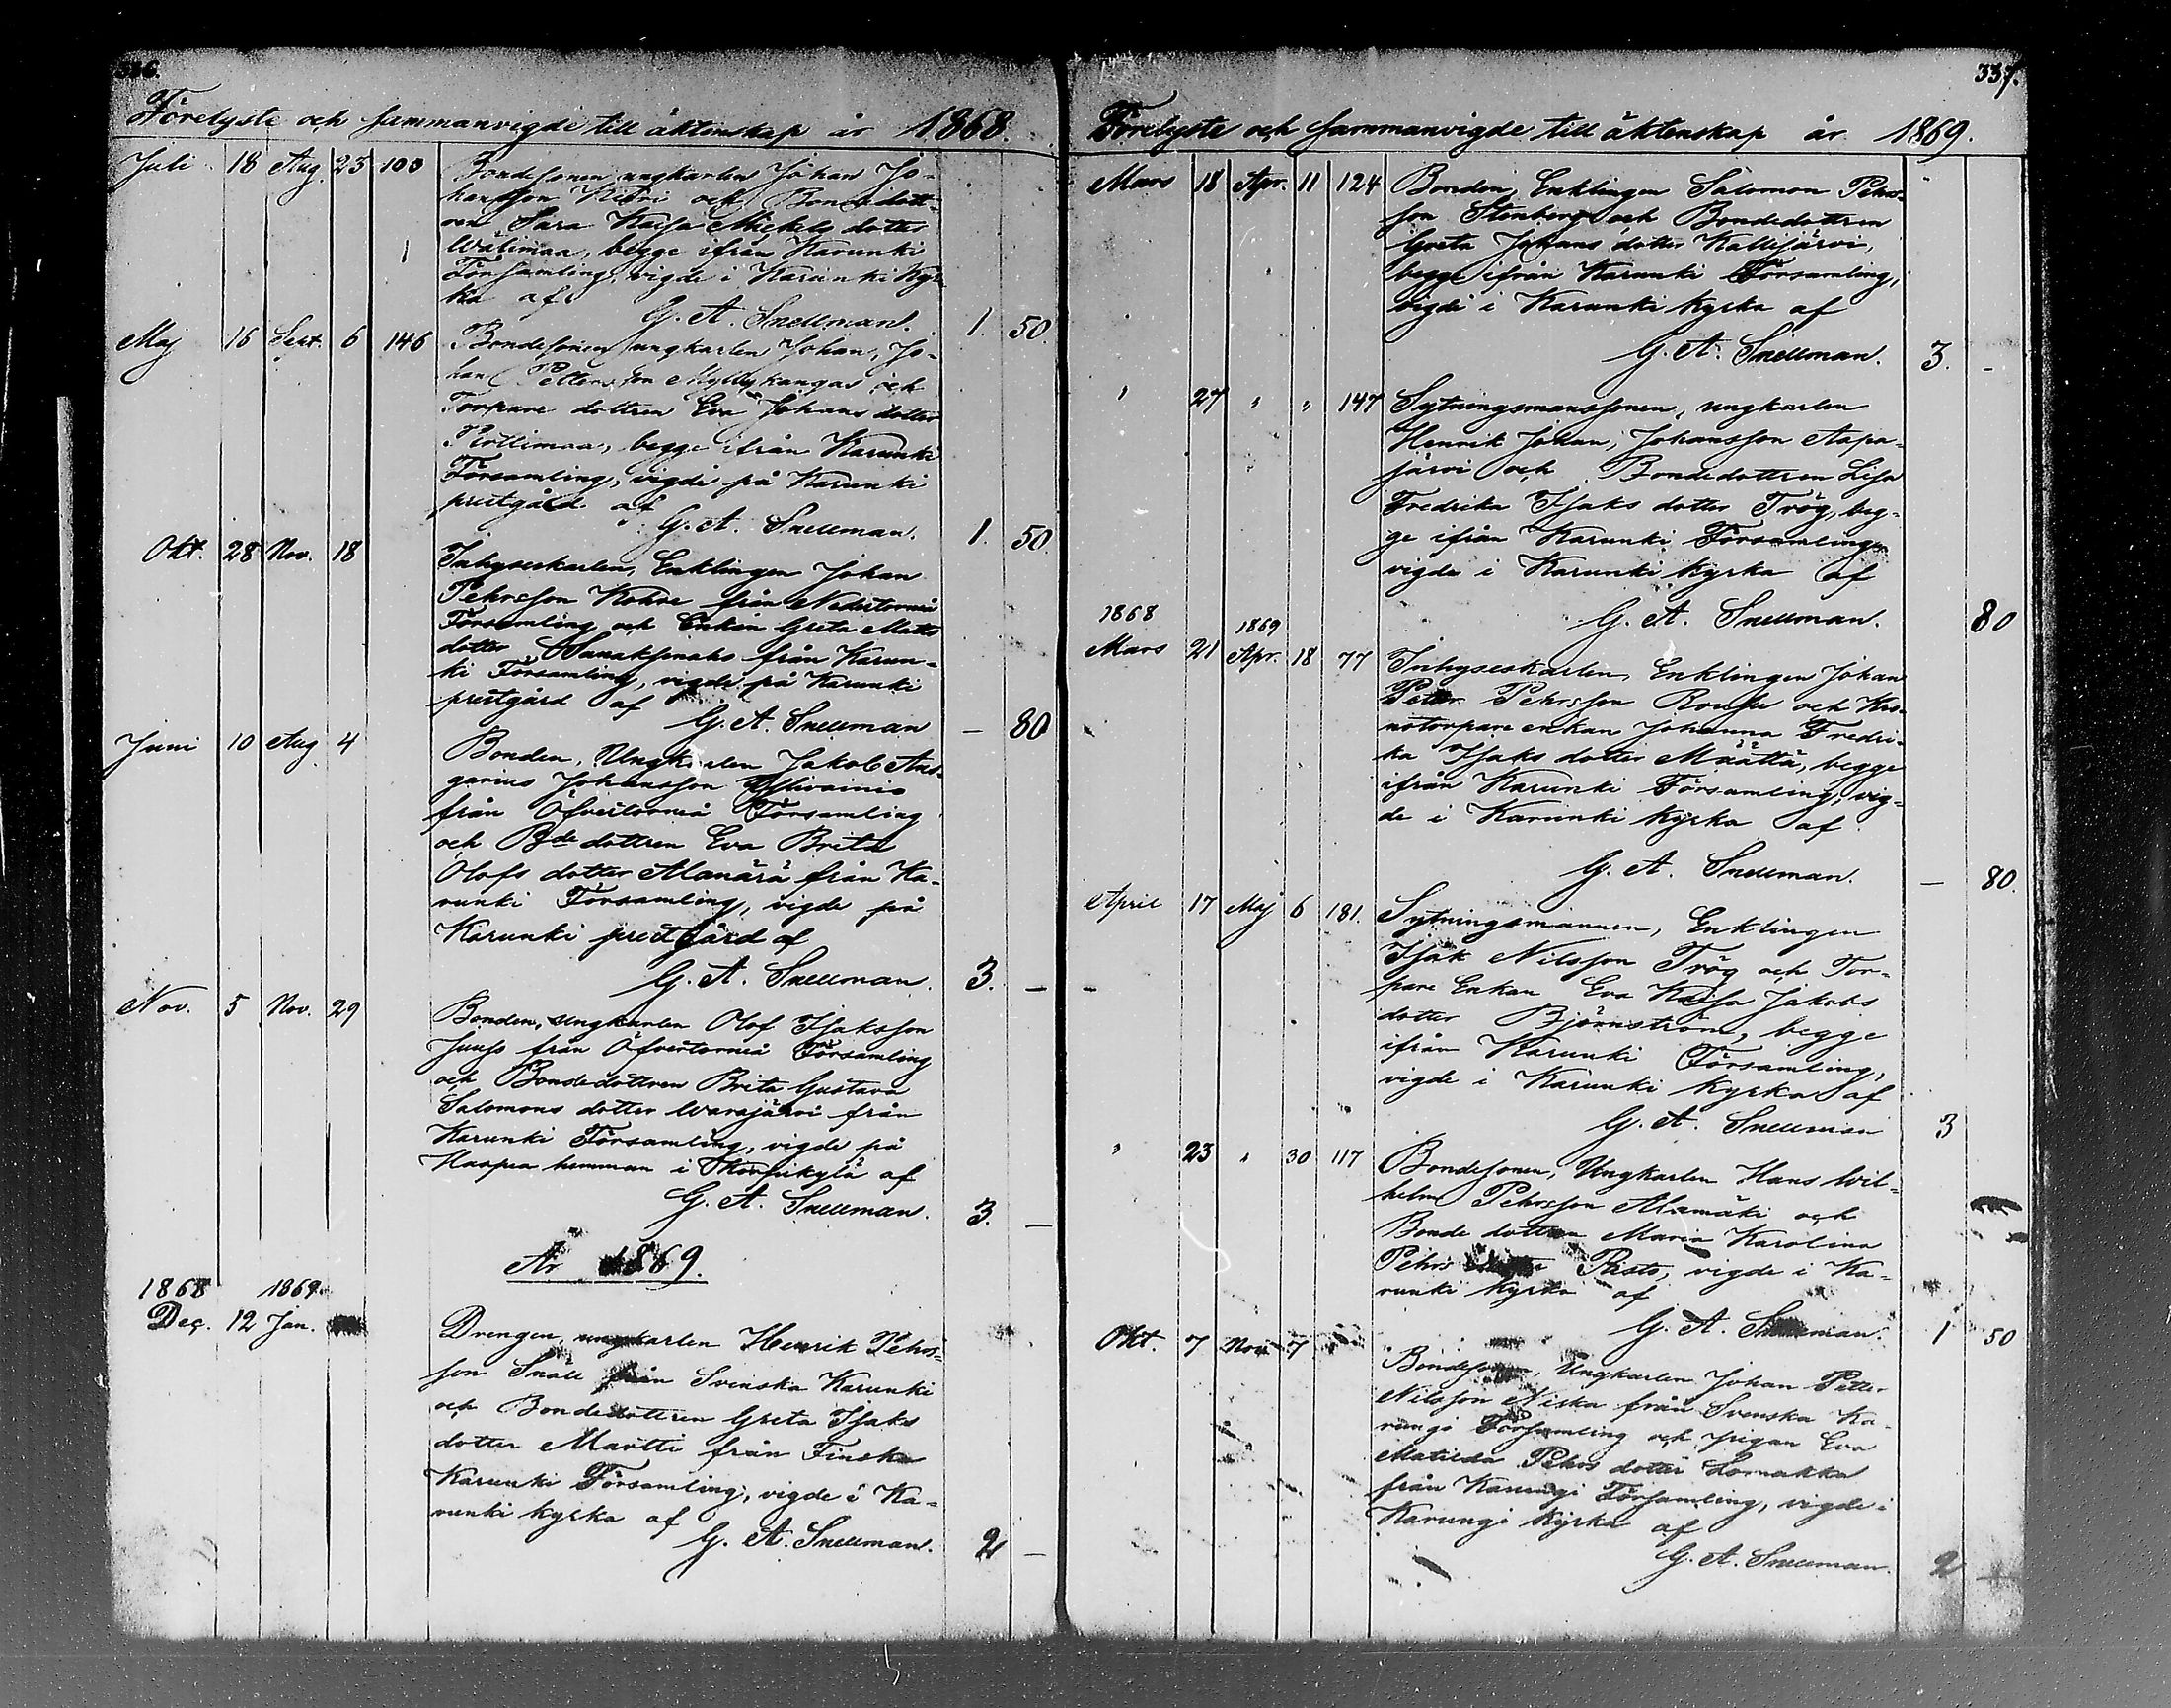 336.
Förelyste och sammanvigde till äktenskap år 1868.
Juli 18 Aug. 23 100 Bondesonen ungkarlen Johan Jo-
hansson och Bondedott-
ren Sara Kaisa Mickels dotter
Wälimaa, begge ifrån Karunki
Församling, vigde i Karunki Kyr-
ka af
G. A. Snellman. 1. 50.
Maj 16 Sept. 6 146 Bondesonen ungkarlen Johan, Jo-
han Pettersson Myllykangas och
Torpare dottren Eva Johans dotter
begge ifrån Karunki
Församling, vigde på Karunki
prestgård af
G. A. Snellman. 1. 50
Okt. 28 Nov. 18 Inhyseskarlen, Enklingen Johan
Pehrsson från Nedertorneå
Församling och Enkan Greta Matts
dotter från Karun-
ki Församling, vigde på Karunki
prestgård af
G. A. Snellman — 80
Juni 10 Aug. 4 Bonden, Ungkarlen Jakob Ans-
garius Johansson
från Öfvertorneå Församling
och Bde dottren Eva Brita
Olofs dotter Alanärä från Ka-
runki Församling, vigde på
Karunki prestgård af
G. A. Snellman. 3. —
Nov. 5 Nov. 29 Bonden, ungkarlen Olof Isaksson
Juuso från Öfvertorneå Församling
och Bondedottren Brita Gustava
Salomons dotter Warajärvi från
Karunki Församling, vigde på
Haapea hemman i af
G. A. Snellman. 3. —
År 1869.
1868 1869
Dec. 12 Jan. Drengen, ungkarlen Henrik Pehrs-
son Snäll från Svenska Karunki
och Bondedottren Greta Isaks
dotter Martti från Finska
Karunki Församling, vigde i Ka-
runki kyrka af
G. A. Snellman. 2 —
337.
Förelyste och sammanvigde till äktenskap år 1869.
Mars 18 Apr. 11 124 Bonden, Enklingen Salomon Pehrs-
son Stenberg och Bondedottren
Greta Johans dotter Kallijärvi,
begge ifrån Karunki Församling,
vigde i Karunki kyrka af
G. A. Snellman. 3. -
" 27 " " 147 Sytningsmanssonen, ungkarlen
Henrik Johan, Johansson Aapa-
järvi och Bondedottren Lisa
Fredrika Isaks dotter Trög, beg-
ge ifrån Karunki Församling
vigde i Karunki kyrka af
G. A. Snellman. 80
1868 1869
Mars 21 Apr. 18 77 Inhyseskarlen, Enklingen Johan
Petter Pehrsson och Kro-
notorpare enkan Johanna Fredri-
ka Isaks dotter Määttä, begge
ifrån Karunki Församling, vig-
de i Karunki kyrka af
G. A. Snellman. — 80.
April 17 Maj 6 181. Sytningsmannen, Enklingen
Isak Nilsson Trög och Tor-
pare Enkan Eva Kajsa Jakobs
dotter Björnström, begge
ifrån Karunki Församling,
vigde i Karunki kyrka af
G. A. Snellman 3
" 23 " 30 117 Bondesonen, Ungkarlen Hans Wil-
helm Pehrsson Alamäki och
Bonde dottren Maria Karolina
Pehrs vigde i Ka-
runki kyrka af
G. A. Snellman. 1 50
Okt. 7 Nov. 7 Bondesonen, Ungkarlen Johan Petter
Nilsson Niska från Svenska Ka-
rungi Församling och pigan Eva
Matilda Pehrs dotter Lomakka
från Karungi Församling, vigde i
Karungi Kyrka af
G. A. Snellman. 2 —